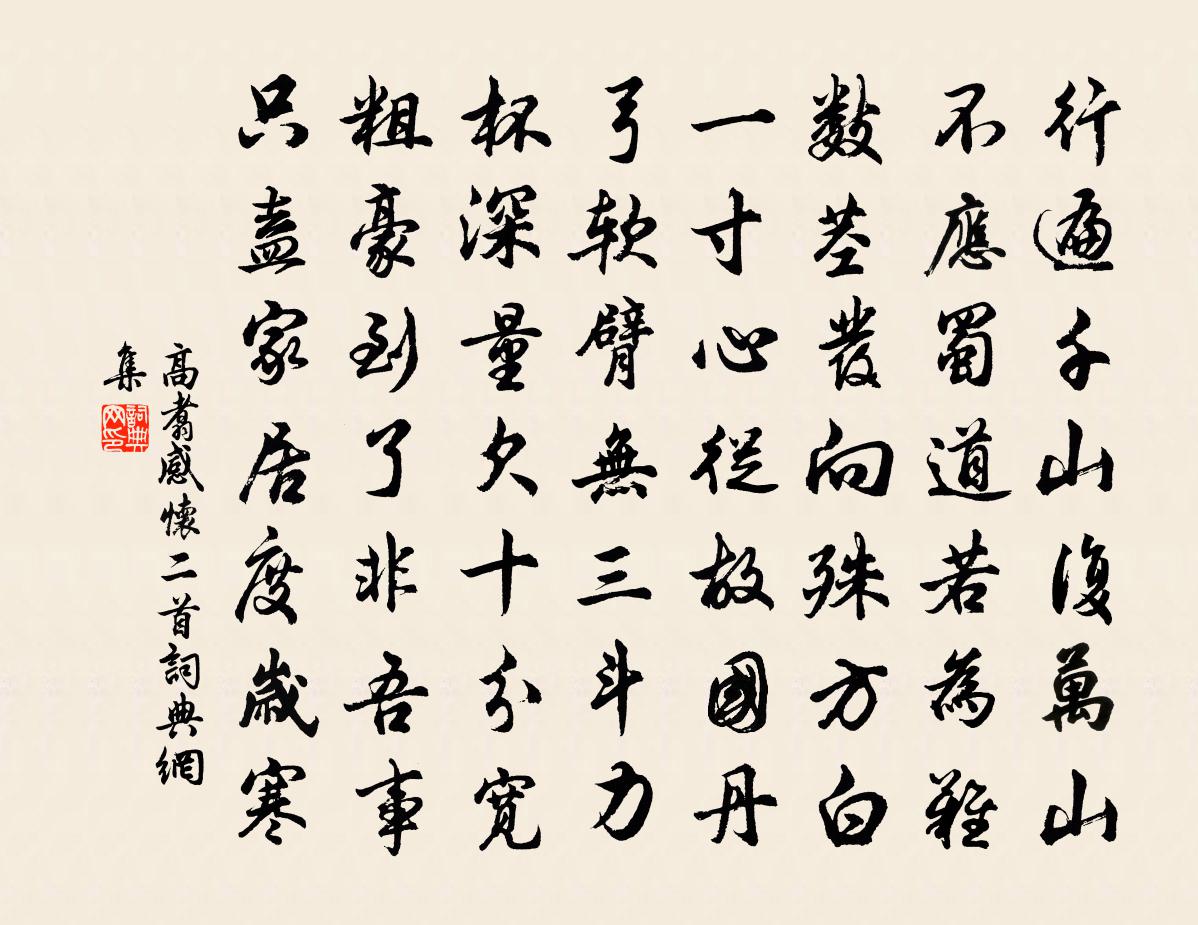 行遍千山復萬山
不應蜀道若為難
數莖發向殊方白
一寸心從故國丹
弓軟臂無三斗力
杯深量欠十分寬
粗豪到了非吾事
只盍家居度歲寒
高翥感懷二首詞典網
集
詞典网印